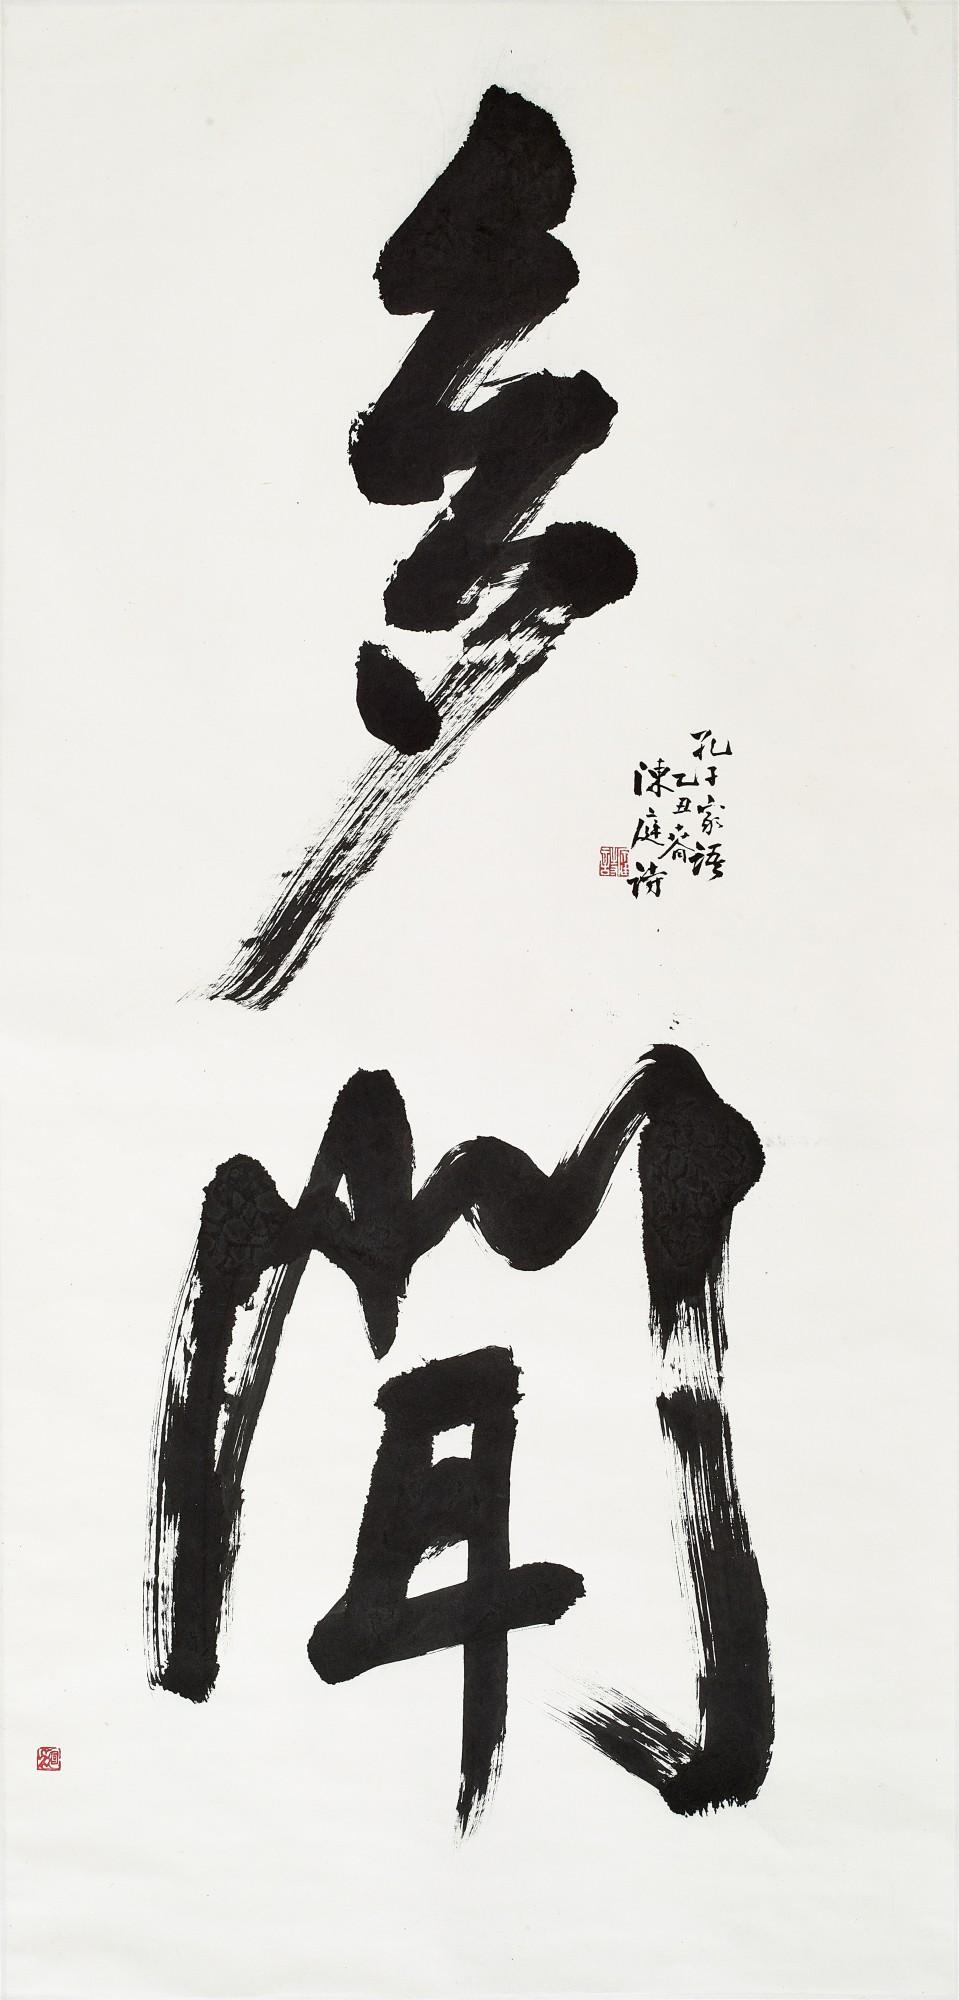 多聞
孔子家語
乙丑春
陳庭詩